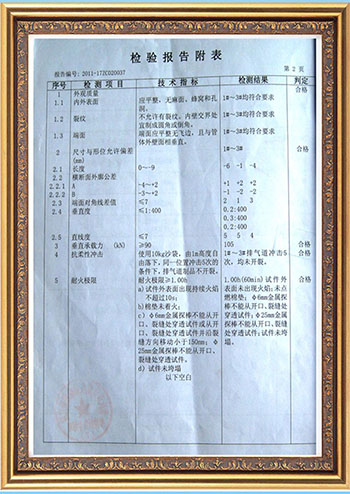 检验报告附表
报告编号：2011-17ZCD20037 第 2 页
检 测 项 目 技 术 指 标 检测结果 判定
1 外观质量 合格
1.1 内外表面 应平整，无麻面、蜂窝和孔洞。 1#～3#均符合要求
1.2 裂纹 不允许有裂纹。内壁交界处宜制成圆角或倒角。 1#～3#均符合要求
1.3 端面 端面应平整无飞边，且与管体外壁面相垂直。 1#～3#均符合要求
2 尺寸与形位允许偏差(mm) 1# 2# 3# 合格
2.1 长度 0～-9 -6 -1 -4
2.2 横断面外廓公差
2.2.1 A -4～+2 +1 +2 +2
2.2.2 B -3～+2 -2 -1 -2
2.3 端面对角线差值 ≤7 2 1 3
2.4 垂直度 ≤1:400 0.2:400
0.3:400
0.2:400
2.5 直线度 ≤7 5 5 4
3 垂直承载力 (kN) ≥90 105 合格
4 抗柔性冲击 使用10kg沙袋，由1m高度自由落下，同一位置冲击5次的条件下，排气道制品不开裂。 1#～3#排气道冲击5次，均未开裂。 合格
5 耐火极限 耐火极限≥1.00h 1.00h(60min)试件外表面未出现火焰；未点燃棉垫；φ6mm金属探棒不能从开口、裂缝处穿透试件；φ25mm金属探棒不能从开口、裂缝处穿透试件；试件未垮塌。 合格
a)试件外表面出现持续火焰不超过10s；
b)棉垫未着火；
c)φ6mm金属探棒不能从开口、裂缝处穿透试件或从开口、裂缝处穿透试件并沿裂缝方向移动小于150mm；φ25mm金属探棒不能从开口、裂缝处穿透试件。
d)试件未垮塌
以下空白